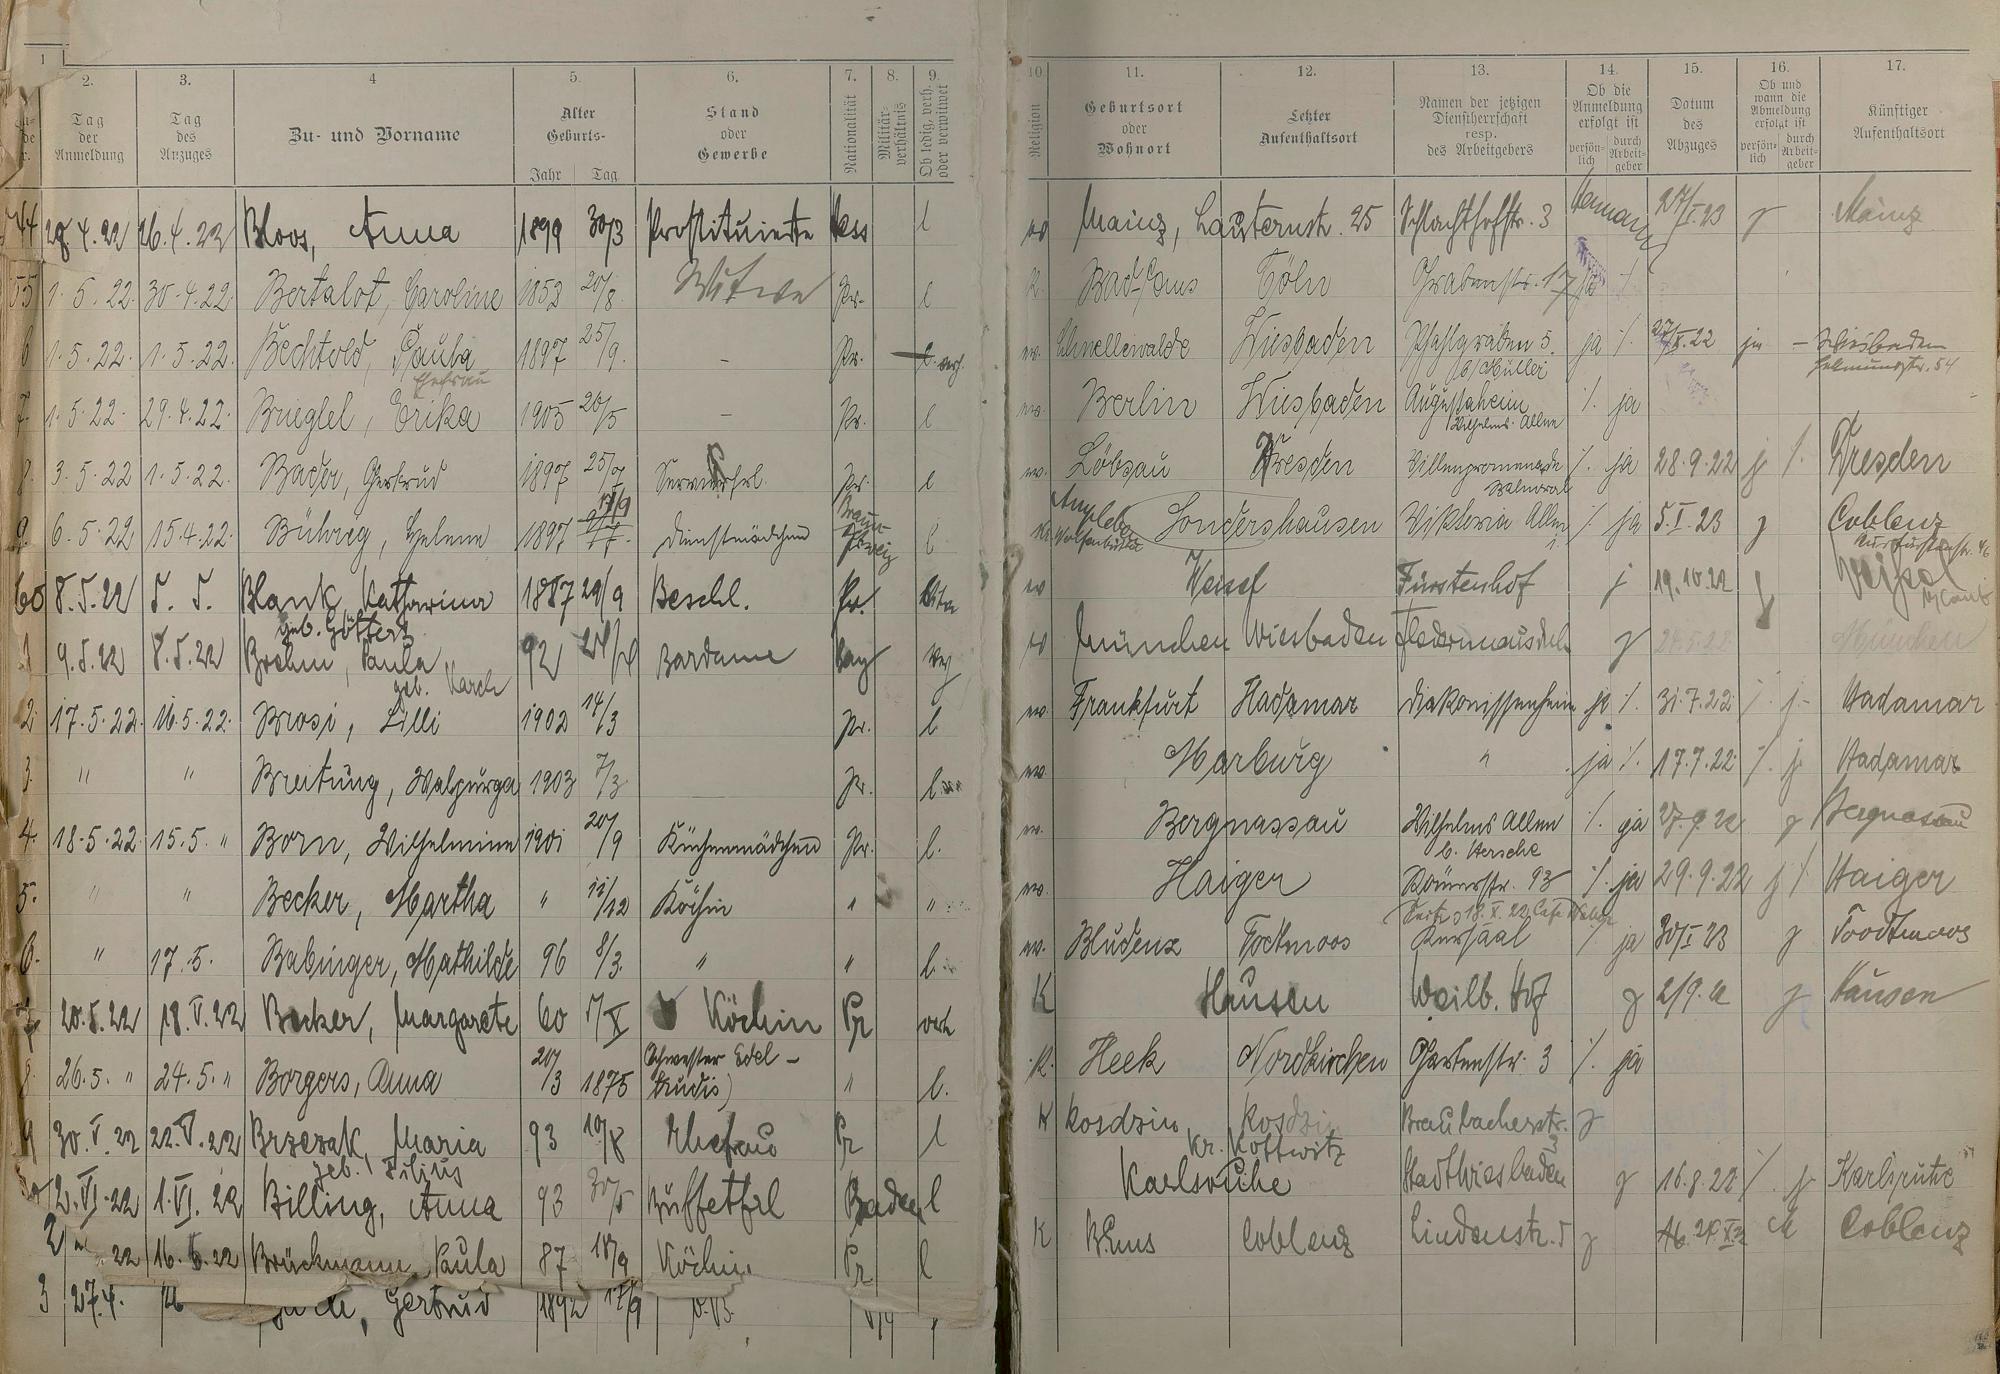 1
2. 3. 4 5. 6. 7. 8. 9.
Tag der Anmeldung
Tag des Anzuges
Zu- und Vorname
Alter
Geburts-
Jahr Tag
Stand oder Gewerbe
Nationalität
Militärverhältnis
Ob ledig, verh. oder verwitwet
10 11. 12. 13. 14. 15. 16. 17.
Religion
Geburtsort oder Wohnort
Letzter Aufenthaltsort
Namen der jetzigen Dienstherrschaft resp. des Arbeitgebers
Ob die Anmeldung erfolgt ist
persönlich
durch Arbeitgeber
Datum des Abzuges
Ob und wann die Abmeldung erfolgt ist
persönlich
durch Arbeitgeber
Künftiger Aufenthaltsort
28.4.22 26.4.22 Bloos, Anna 1899 30/3 Prostituierte Hess l Mainz, Lauternstr. 25 Schlachthofstr. 3 27/I.23 j Mainz
55 1.5.22 30.4.22 Bertalot, Caroline 1852 20/8 Witwe Pr. l K. Bad-Ems Cöln Grabenstr. 17 ja
6 1.5.22. 1.5.22. Bechtold, Paula 1897 25/9. – Pr. l. verh. ev. Schnellewalde Wiesbaden Pfahlgraben 5. ja 27/X.22 ja – Wiesbaden
Ehefrau b/Müller Helmundstr. 54
7. 1.5.22. 29.4.22. Bruglel, Erika 1905 20/5 – Pr. l ev. Berlin Wiesbaden Augustaheim ja
Wilhelms Allee
8. 3.5.22 1.5.22. Bader, Gertrud 1897 25/7 Servierfrl. Pr. l ev. Löbsau Dresden Villenpromenade ja 28.9.22 j Dresden
Balmoral
9. 6.5.22 15.4.22. Bührig, Helene 1897 17/9 Dienstmädchen Braunschweig l Ampleben Wolfenbüttel Sondershausen Viktoria Allee ja 5.I.23 j Coblenz
60 8.5.22 5. 5. Blank, Katharina 1887 29/9 Beschl. Pr. Witw ev Weisel Fürstenhof j 19.10.22 Weisel
geb. Götterz b/Caub
1 9.5.22 8.5.22 Brehm, Paula 92 Bardame Bay ev München Wiesbaden j 24.5.22 München
geb. Karch
2. 17.5.22. 16.5.22. Brosi, Lilli 1902 14/3 Pr. l ev. Frankfurt Hadamar Diakonissenheim ja 31.7.22. j. Hadamar
3. " " Breitung, Walpurga 1903 7/3 Pr. l. ev. Marburg " ja 17.7.22. j. Hadamar
4. 18.5.22. 15.5. " Born, Wilhelmine 1901 20/9 Küchenmädchen Pr. l. ev. Bergnassau Wilhelms Allee ja 27.9.22 j Bergnassau
b. Hersche
5. " " Becker, Martha " 11/12 Köchin " " ev. Haiger Römerstr. 93 ja 29.9.22 j Haiger
6. " 17.5. Babinger, Mathilde 96 8/3. " " l. ev. Bludenz Todtmoos Kursaal ja 30/I 23 j Toodtmoos
20.5.22 18.V.22 Becker, Margarete 60 5/X Köchin Pr verh K Hausen Weilb. Hof j 2/9.22 j Hausen
8. 26.5. " 24.5. " Borgers, Anna 20/3 1875 Schwester Edel- " l. K. Heek Nordkirchen Gartenstr. 3 ja
trudis)
9 30.V.22 22.V.22 Brzezak, Maria 93 10/8 Ehefrau Pr l K Kosdzin Kosdzin Braubacherstr. j
geb. Filius Kr. Kottwitz 3
2.VI.22 1.VI.22 Billing, Anna 93 30/5 Büffetfrl Baden l Karlsruhe Stadt Wiesbaden j 16.8.22 j Karlsruhe
2 " 22 16.5.22 Brückmann, Paula 87 18/9 Köchin Pr l K B.Ems Coblenz Lindenstr. 5 j Coblenz
3 27.4. Gertrud 1892 17/9